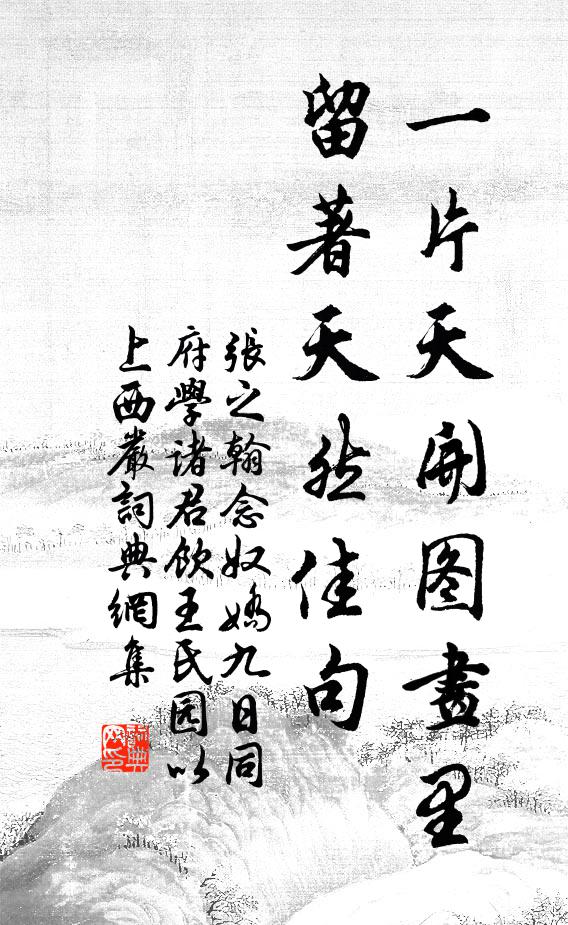 一片天開图畫里
留著天然佳句
張之翰念奴嬌九日同
府學诸君飲王民园以
上西嚴詞典網集